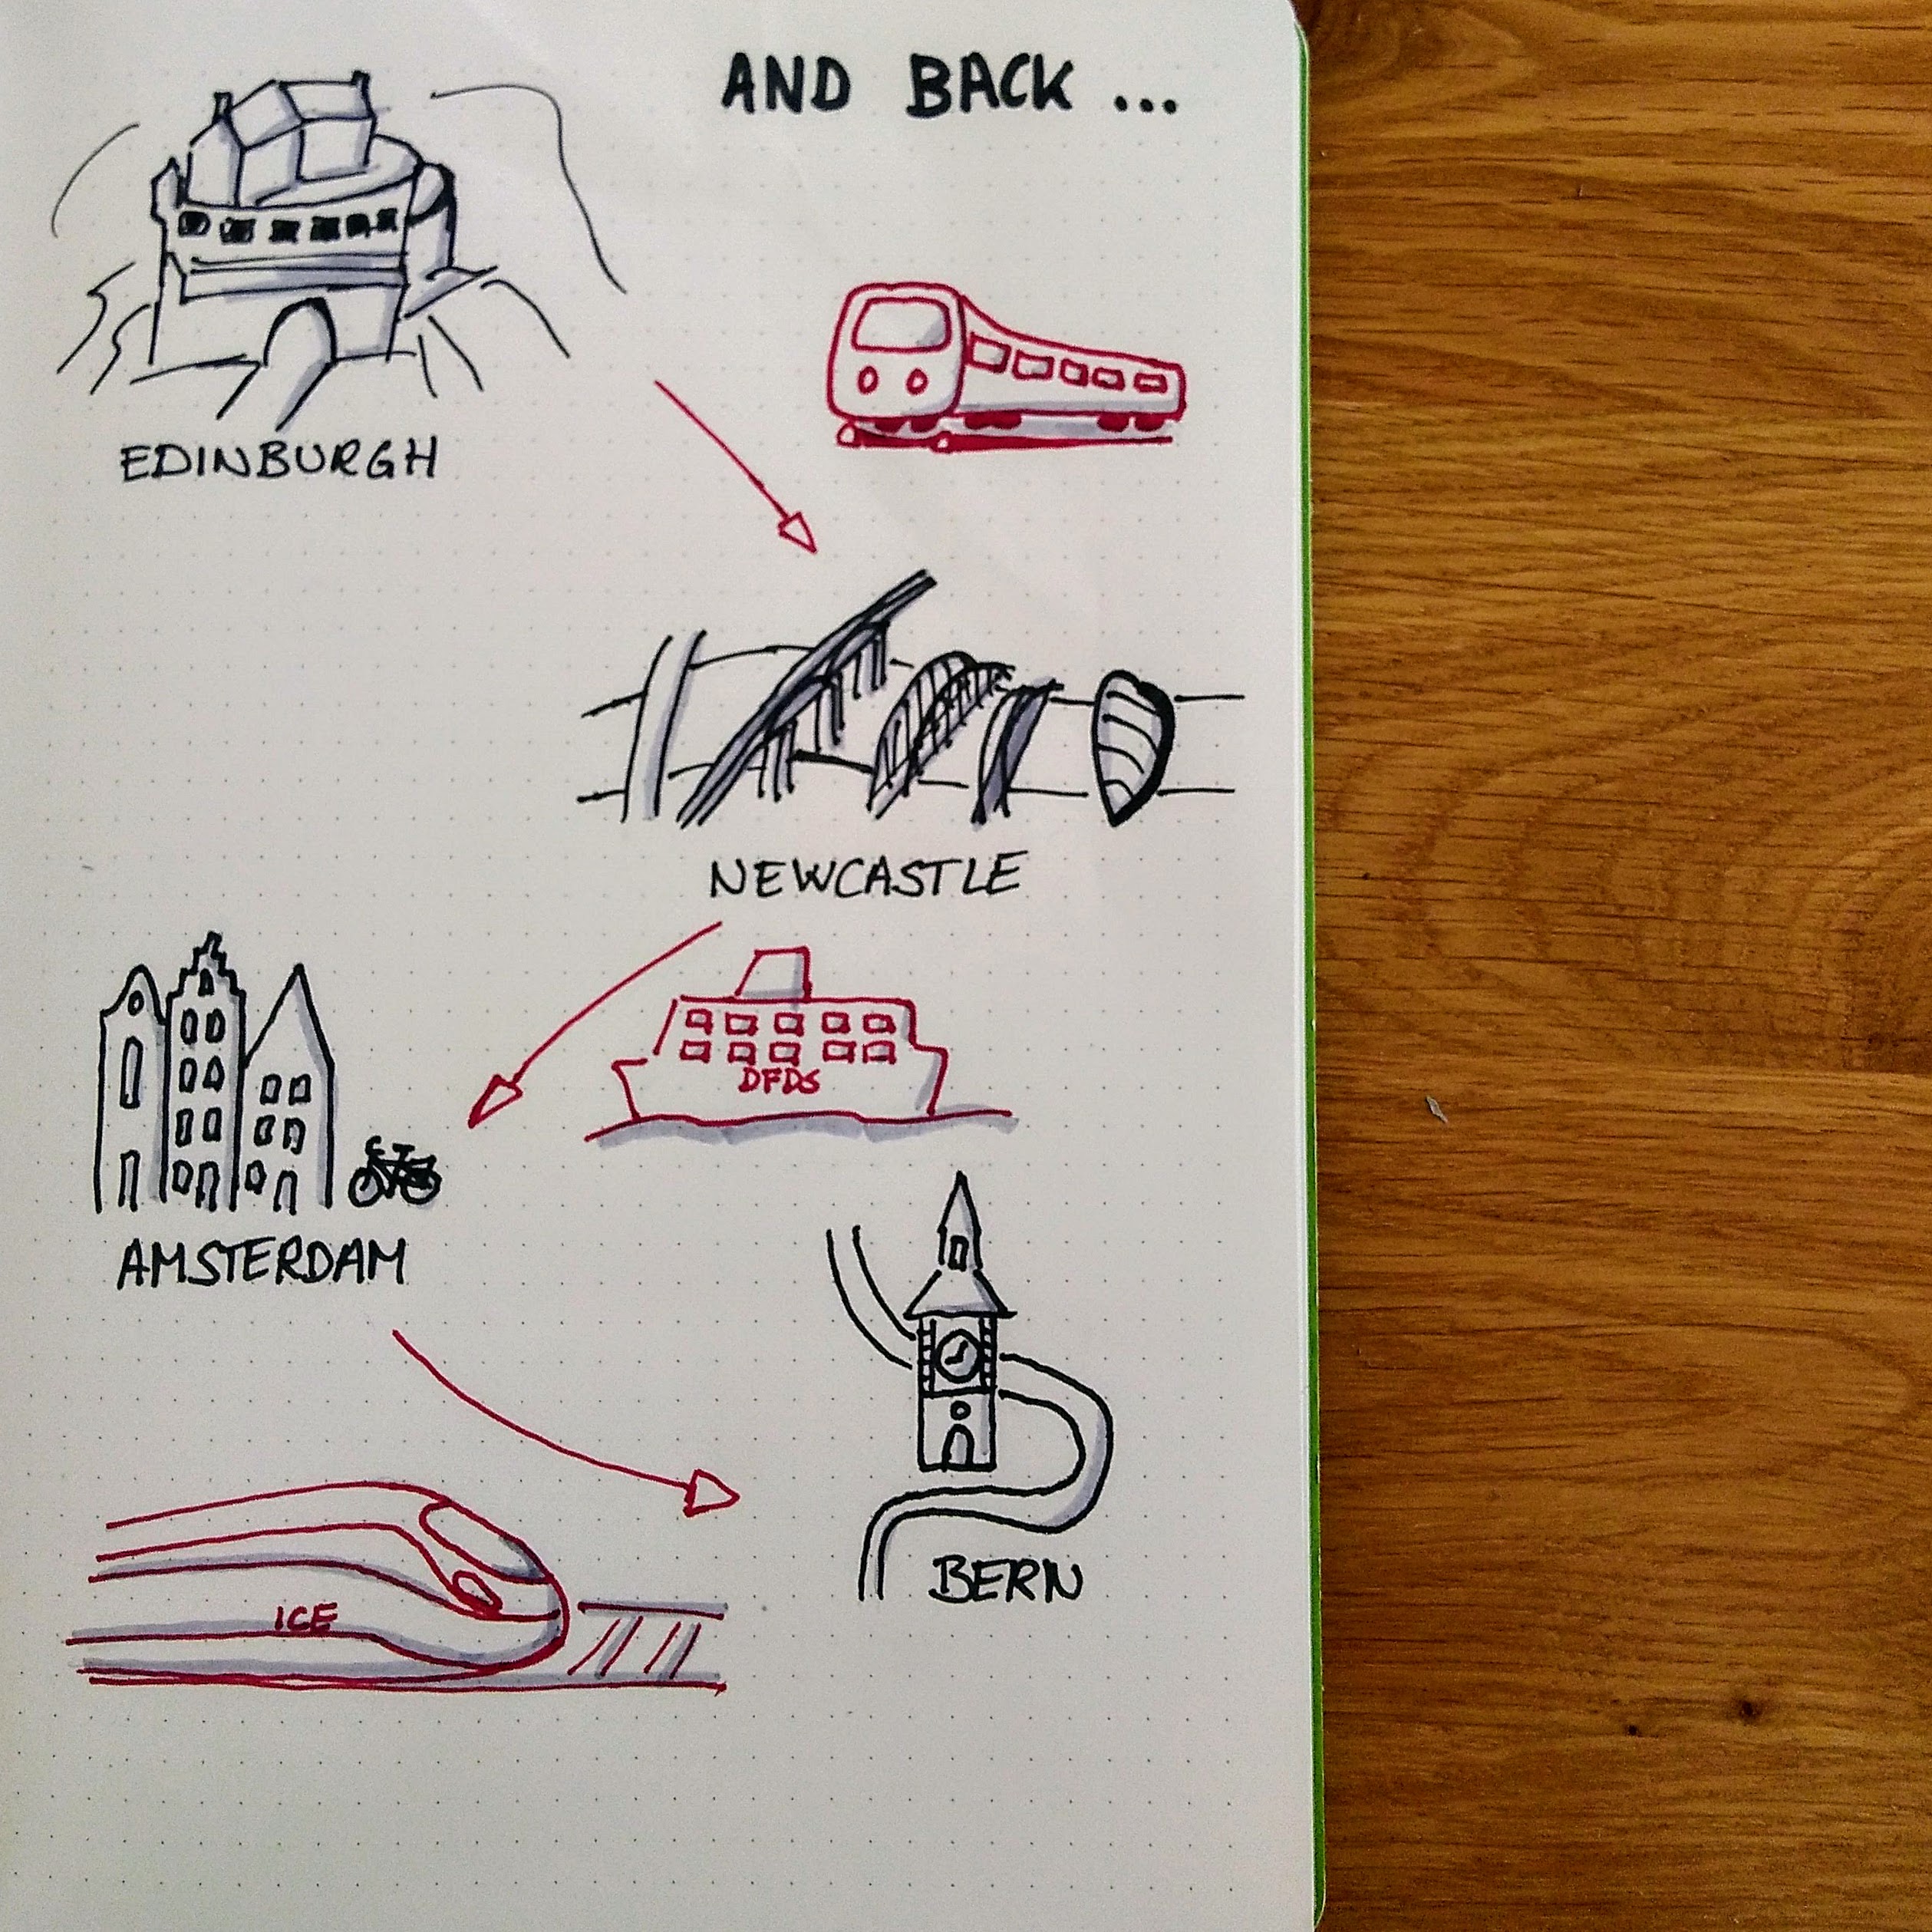 AND BACK ...
EDINBURGH
NEWCASTLE
DFDS
AMSTERDAM
BERN
ICE